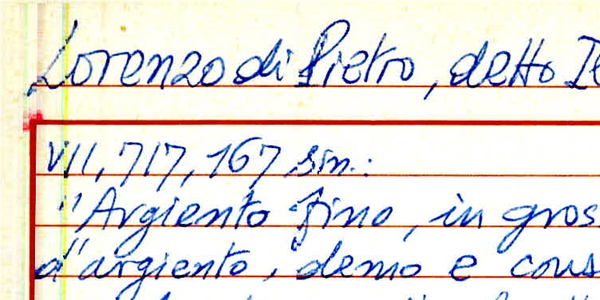 Lorenzo di Pietro, detto Il
VII, 717, 167 sin.:
"Argiento fino, in gros
d'argiento, demo e cons